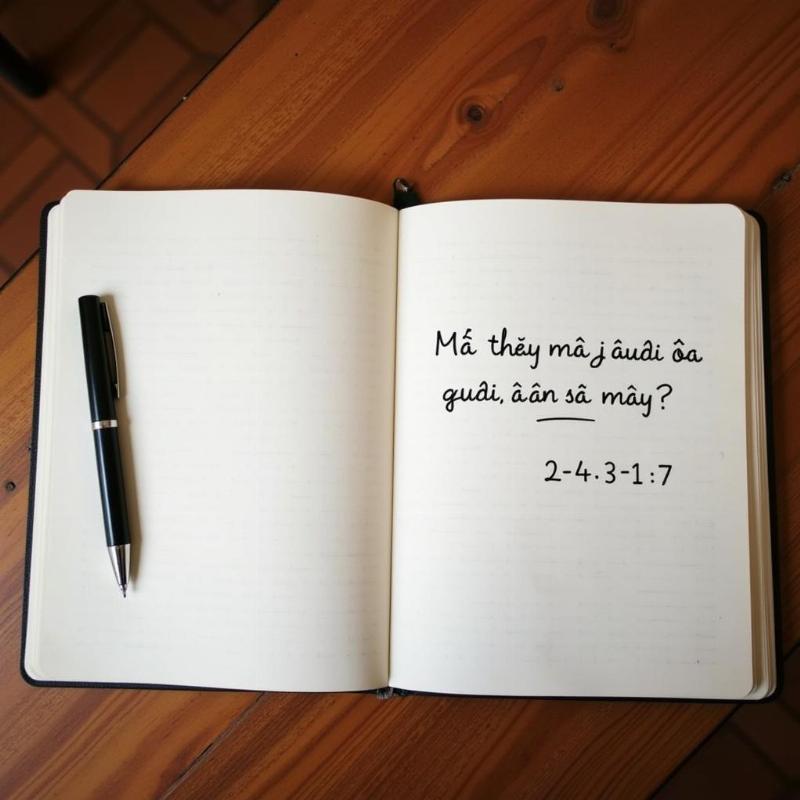 Mấ thĕy mâ j âuđi ôa
guđi, â ân sâ mây?
2-4.3-1:7